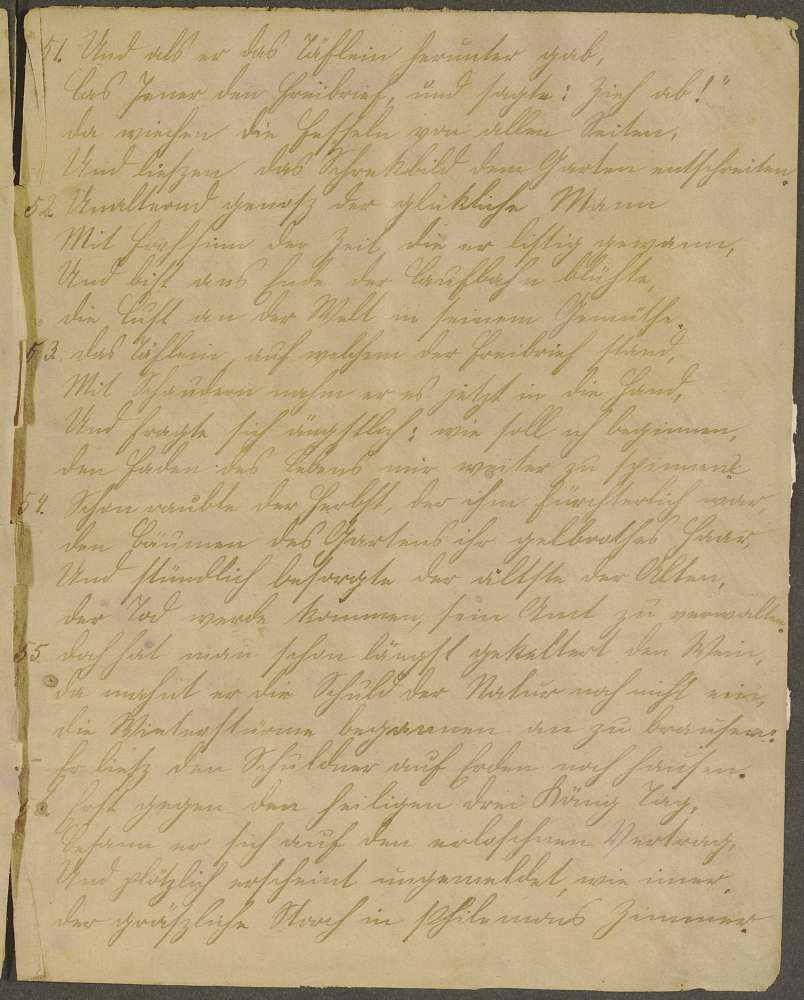 51. Und als er das Täflein herunter gab,
Las Jener den Freibrief, und sagte: Zieh ab!"
da wiechen die Fesseln von allen Seiten,
Und lieszen das Schrekbild dem Garten entschreiten.
52 Unalternd genosz der glükliche Mann
Mit Frohsinn der Zeit, die er listig gewann,
Und bist ans Ende der Laufbahn blühte,
die Lust an der Welt in seinem Gemüthe.
53. das Täflein, auf welchem der Freibrief stand,
Mit Schaudern nahm er es jetzt in die Hand,
Und fragte sich ängstlich: wie soll ich beginnen,
den Faden des Lebens mir weiter zu spinnen?
54. Schon raubte der Herbst, der ihm fürchterlich war,
den Bäumen des Gartens ihr gelbrothes Haar,
Und stündlich besorgte der ältste der Alten,
der Tod werde kommen, sein Amt zu verwalten.
55 doch hat man schon längst gekeltert den Wein,
da mahnt er die Schuld der Natur noch nicht ein,
die Winterstürme begannen an zu brausen:
Er liesz den Schuldner auf Erden noch hausen.
Erst gegen den heiligen drei König Tag,
Besann er sich auf den erloschnen Vertrag,
Und plötzlich erscheint ungemeldet, wie imer,
der gräszliche Starch in Philemons Zimmer.